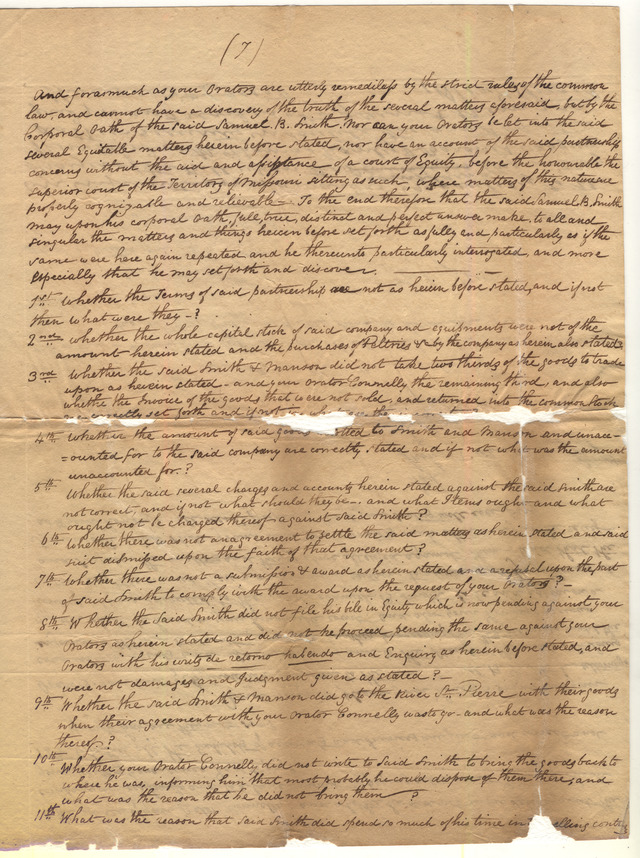 (7)
And forasmuch as your Orators are utterly remediless by the strict rules of the common
law, and cannot have a discovery of the truth of the several matters aforesaid, but by the
Corporal Oath of the said Samuel B. Smith, Nor can your Orators be let into the said
several Equitable matters herein before stated, nor have an account of the said partnership
concerns without the aid and assistance of a court of Equity, before the honourable the
superior court of the Territory of Missouri sitting as such, where matters of this nature are
properly cognizable and relievable— To the end therefore that the said Samuel B. Smith
may upon his corporal oath, full, true, distinct and perfect answer make, to all and
singular the matters and things herein before set forth as fully and particularly as if the
same were here again repeated and he thereunto particularly interrogated, and more
Especially that he may set forth and discover.
1st Whether the Terms of said partnership are not as herein before stated, and if not
then what were they—?
2nd Whether the whole capital stock of said company and equipments were not of the
amount herein stated and the purchases of Peltries &c by the company as herein also stated?
3rd Whether the said Smith & Manson did not take two thirds of the goods to trade
upon as herein stated— and your Orator Connelly the remaining third, and also
whether the Invoice of the goods that were not sold, and returned into the common stock
correctly set forth and if not
4th Whether the amount of said goods to Smith and Manson and unac=
=counted for to the said company are correctly stated and if not what was the amount
unaccounted for.?
5th Whether the said several charges and accounts herein stated against the said Smith are
not correct, and if not what should they be— and what Items ought and what
ought not be charged thereof against said Smith?
6th Whether there was not an agreement to settle the said matters as herein stated and said
suit dismissed upon the faith of that agreement?
7th Whether there was not a submission & award as herein stated and a refusal upon the part
of said Smith to comply with the award upon the request of your Orators?—
8th Whether the said Smith did not file his bill in Equity which is now pending against your
Orators as herein stated and did not he proceed, pending the same against your
Orators with his writs de retorno habendo and Enquiry as herein before stated, and
were not damages and Judgment given as stated?—
9th Whether the said Smith & Manson did go to the River St. Pierre with their goods
when their agreement with your Orator Connelly was to go— and what was the reason
thereof?
10th Whether your Orator Connelly did not write to said Smith to bring the goods back to
where he was, informing him that most probably he could dispose of them there, and
what was the reason that he did not bring them ?
11th What was the reason that said Smith did spend so much of his time in